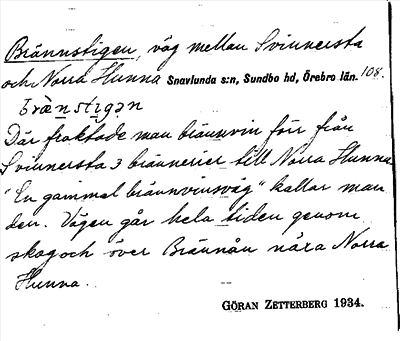 Brännstigen, väg mellan Svinnersta
och Norra Hunna Snavlunda s:n, Sundbo hd, Örebro län. 108.
bræ̀nstigən
Där fraktade man brännvin förr från
Svinnersta 3 brännerier till Norra Hunna
"En gammal brännvinsväg" kallar man
den. Vägen går hela tiden genom
skog och över Brännån nära Norra
Hunna.
GÖRAN ZETTERBERG 1934.